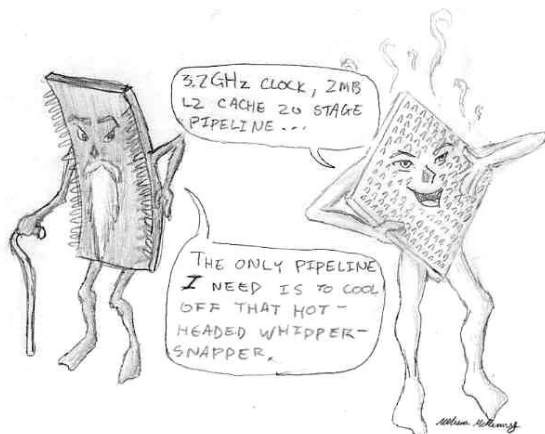 3.2GHz CLOCK, 2MB
L2 CACHE 20 STAGE
PIPELINE...
THE ONLY PIPELINE
I NEED IS TO COOL
OFF THAT HOT-
HEADED WHIPPER-
SNAPPER.
Melissa McKenney